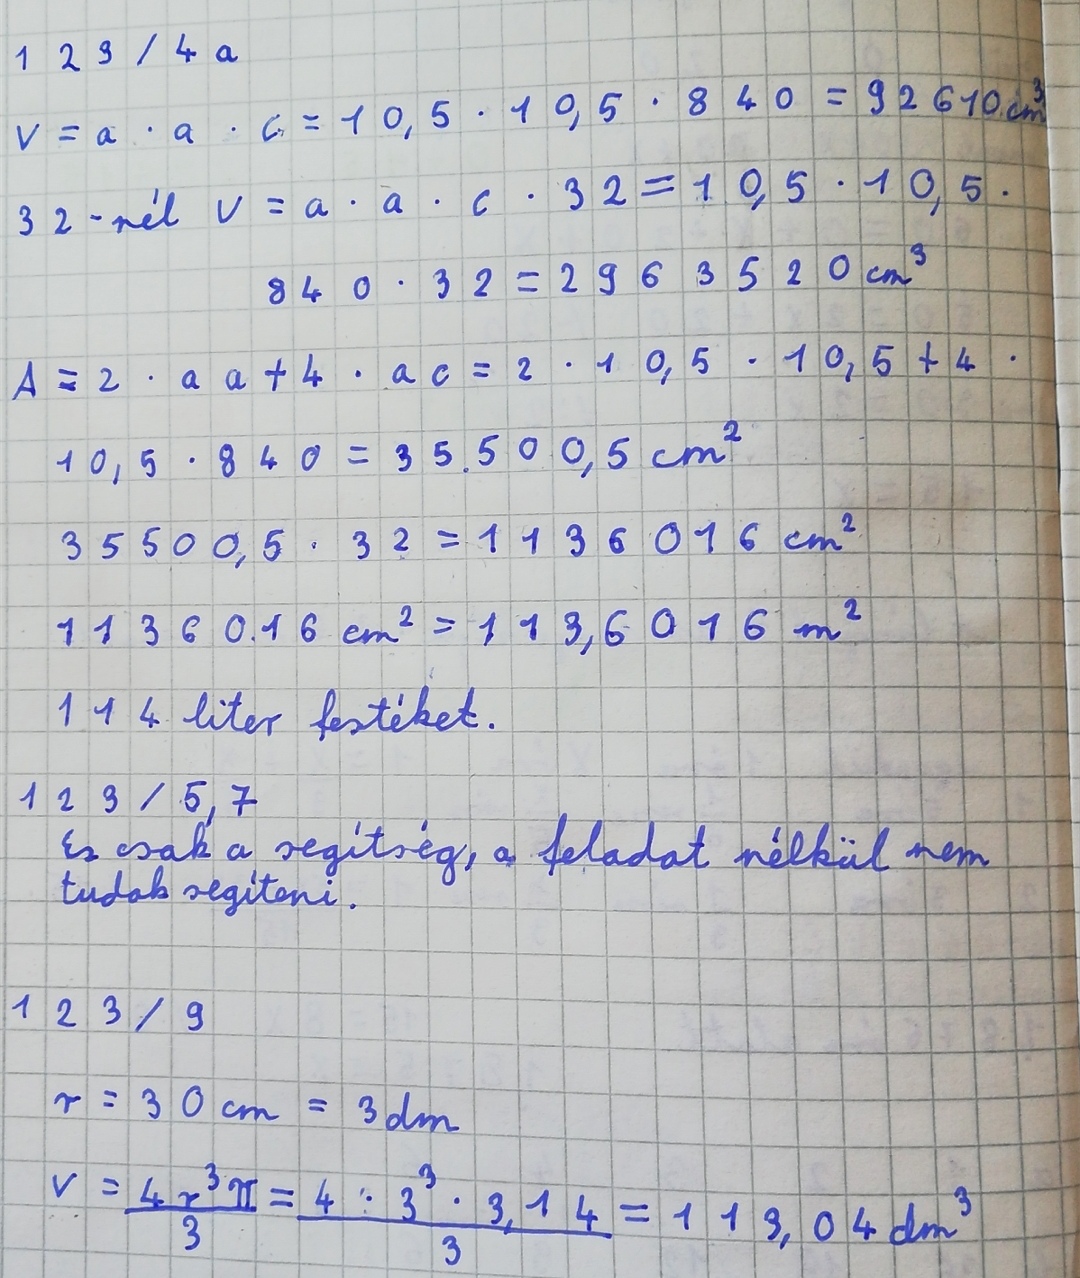 123/4a
V = a · a · c = 10,5 · 10,5 · 840 = 92610 cm³
32-nél V = a · a · c · 32 = 10,5 · 10,5 ·
840 · 32 = 2963520 cm³
A = 2 · aa + 4 · ac = 2 · 10,5 · 10,5 + 4 ·
10,5 · 840 = 35.500,5 cm²
35500,5 · 32 = 1136016 cm²
11360.16 cm² = 113,6016 m²
114 liter festéket.
123/5,7
Ez csak a segítség, a feladat nélkül nem
tudok segíteni.
123/9
r = 30 cm = 3 dm
V = 4r³π/3 = 4 · 3³ · 3,14/3 = 113,04 dm³